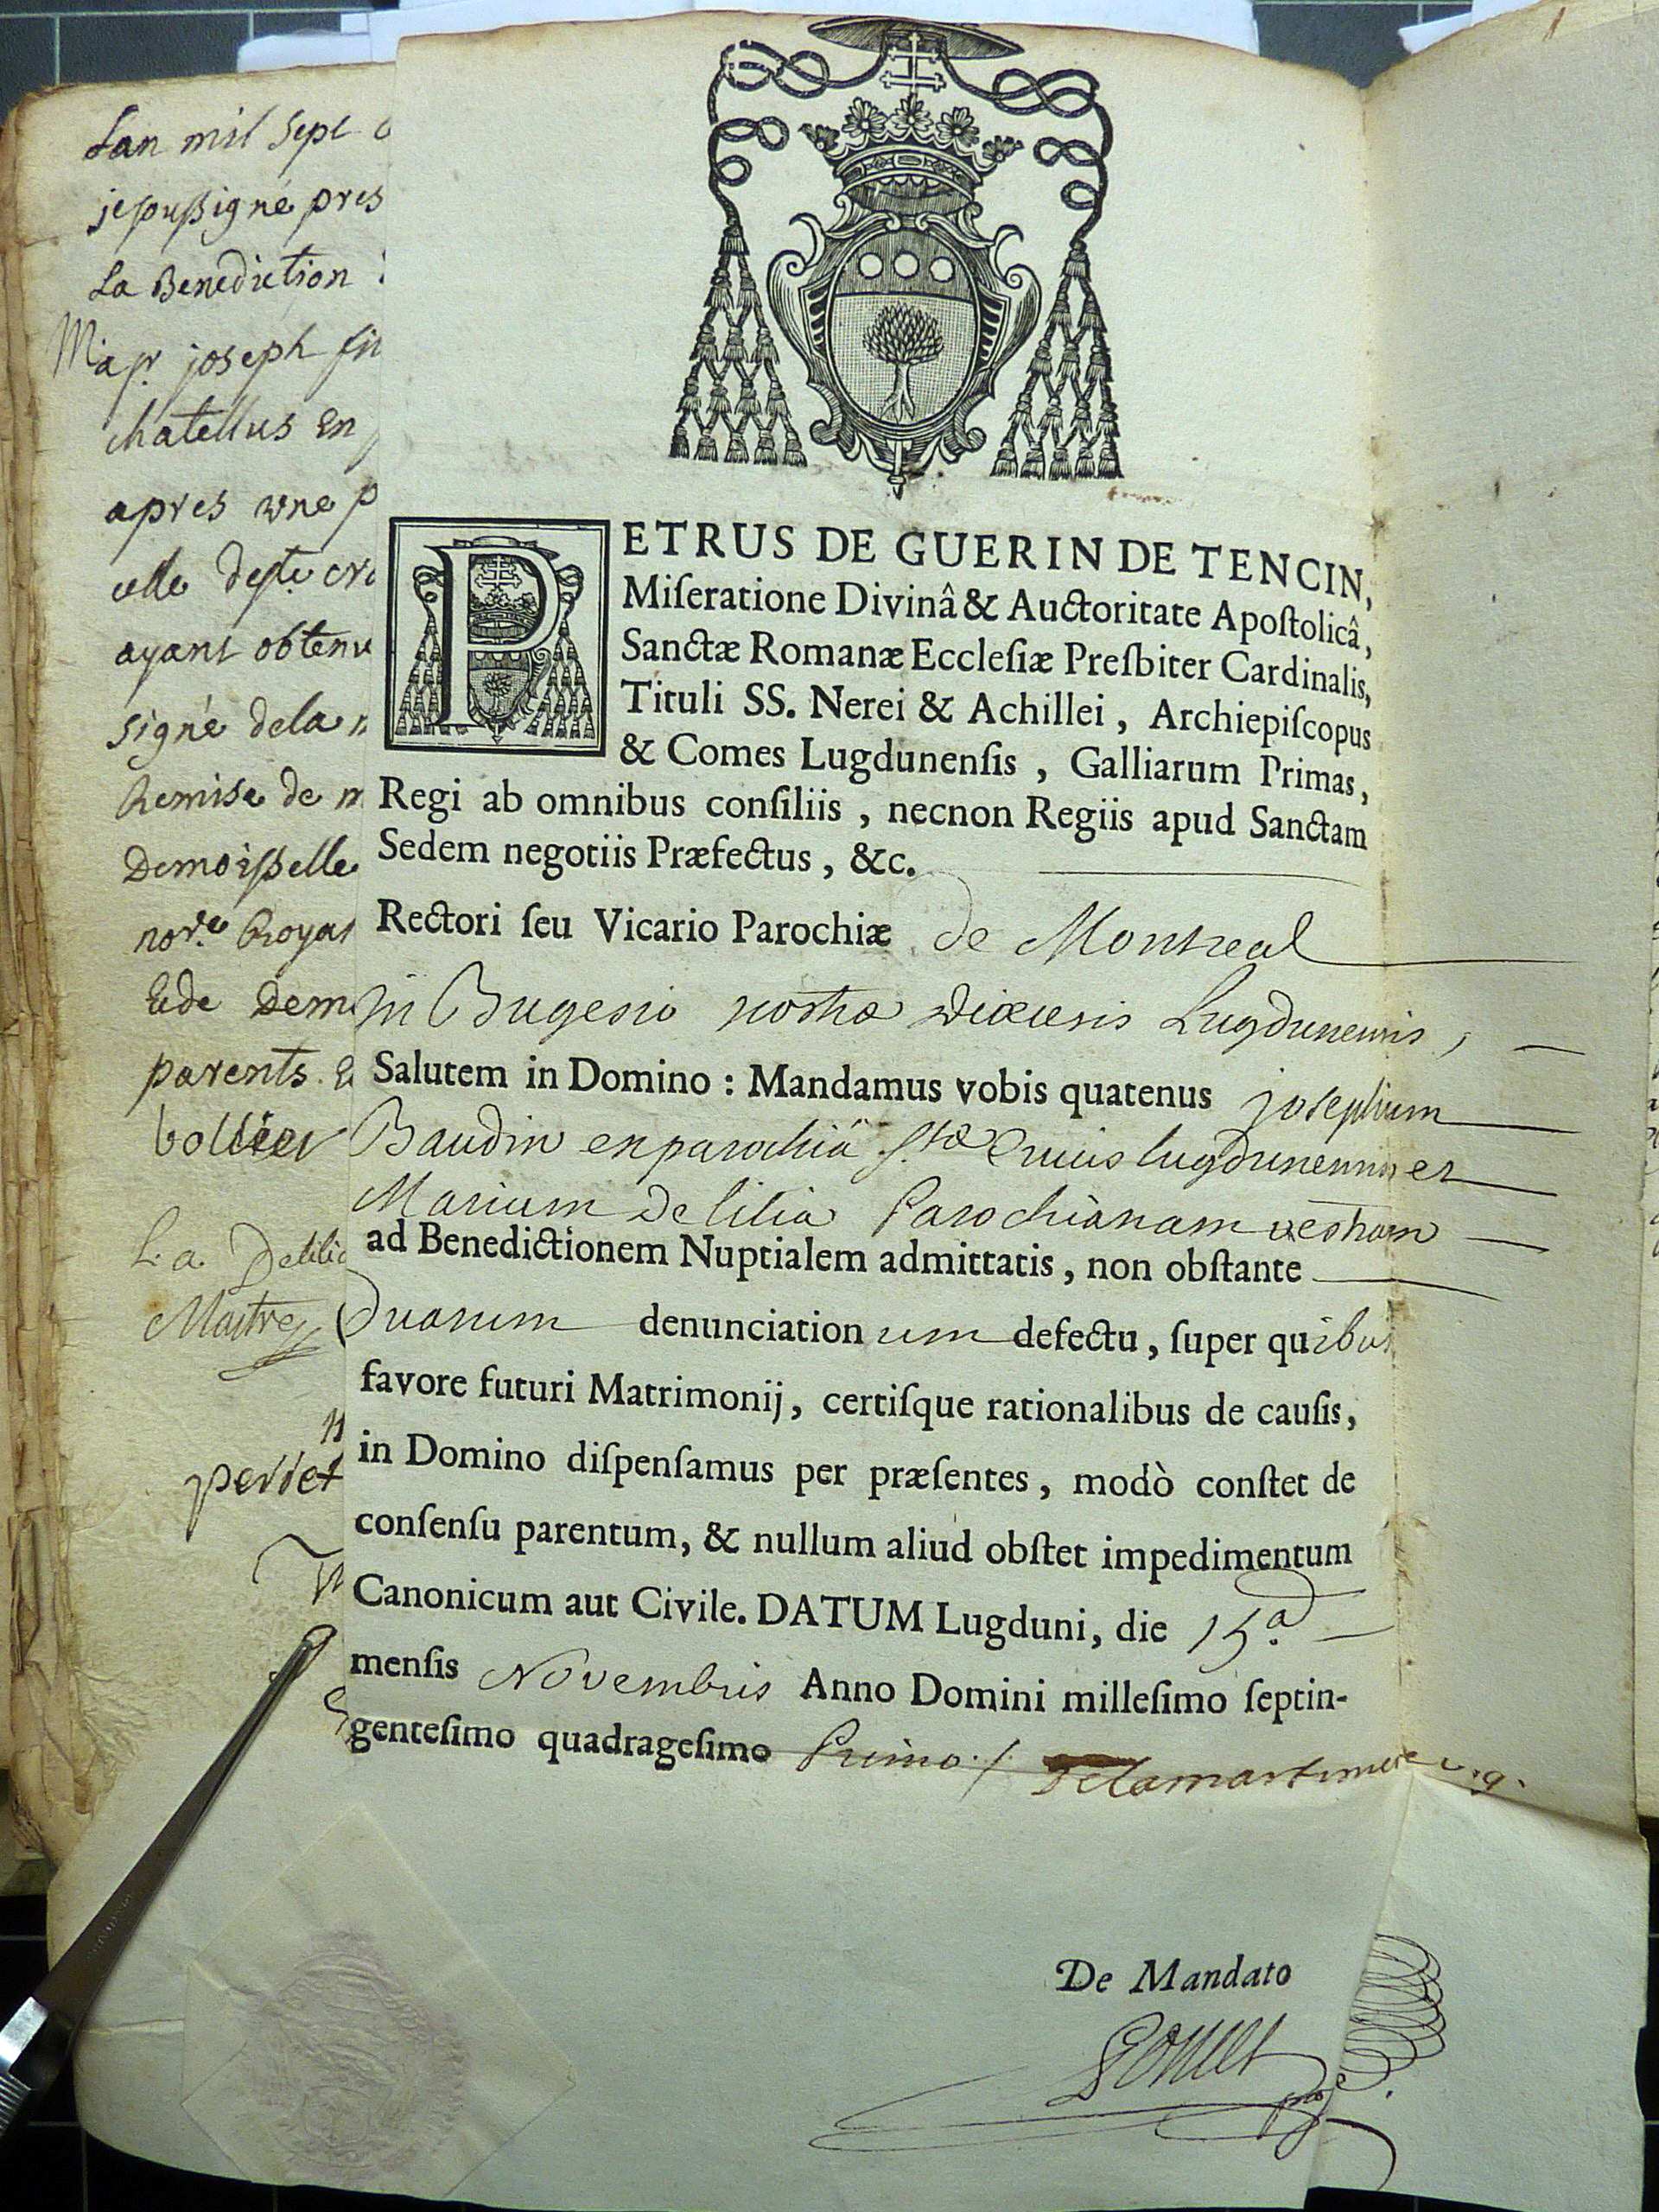 Lan mil sept c
jesoussigné pres
La Benediction
joseph fil
chatellus en
apres une p
celle deste cri
ayant obtenu
signé dela
Remise de m
Demoisselle
nore. Royal
Ede Dem
parents. E
bollier
L. a. Delilia
Maitre
perret
PETRUS DE GUERIN DE TENCIN,
Miſeratione Divinâ & Auctoritate Apoſtolicâ,
Sanctæ Romanæ Eccleſiæ Preſbiter Cardinalis,
Tituli SS. Nerei & Achillei, Archiepiſcopus
& Comes Lugdunenſis, Galliarum Primas,
Regi ab omnibus conſiliis, necnon Regiis apud Sanctam
Sedem negotiis Præfectus, &c.
Rectori ſeu Vicario Parochiæ de Montreal
in Bugesio nostræ Diœcesis Lugdunensis,
Salutem in Domino : Mandamus vobis quatenus josephum
Baudin ex parochiâ Stæ Crucis lugdunensem et
Mariam Delilia Parochianam vestram
ad Benedictionem Nuptialem admittatis, non obſtante
Duarum denunciationum defectu, ſuper quibus
favore futuri Matrimonij, certiſque rationalibus de cauſis,
in Domino diſpenſamus per præſentes, modò conſtet de
conſenſu parentum, & nullum aliud obſtet impedimentum
Canonicum aut Civile. DATUM Lugduni, die 15.a
menſis Novembris Anno Domini milleſimo ſeptin-
genteſimo quadrageſimo Primo./. v. g.
De Mandato